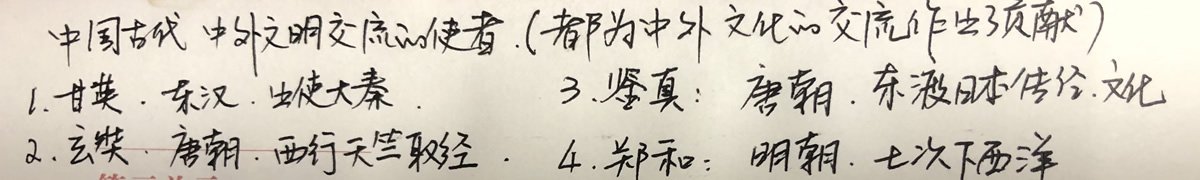 中国古代中外文明交流的使者.(都为中外文化的交流作出了贡献)
1.甘英.东汉.出使大秦.
3.鉴真:唐朝.东渡日本传经.文化
2.玄奘.唐朝.西行天竺取经.
4.郑和:明朝.七次下西洋